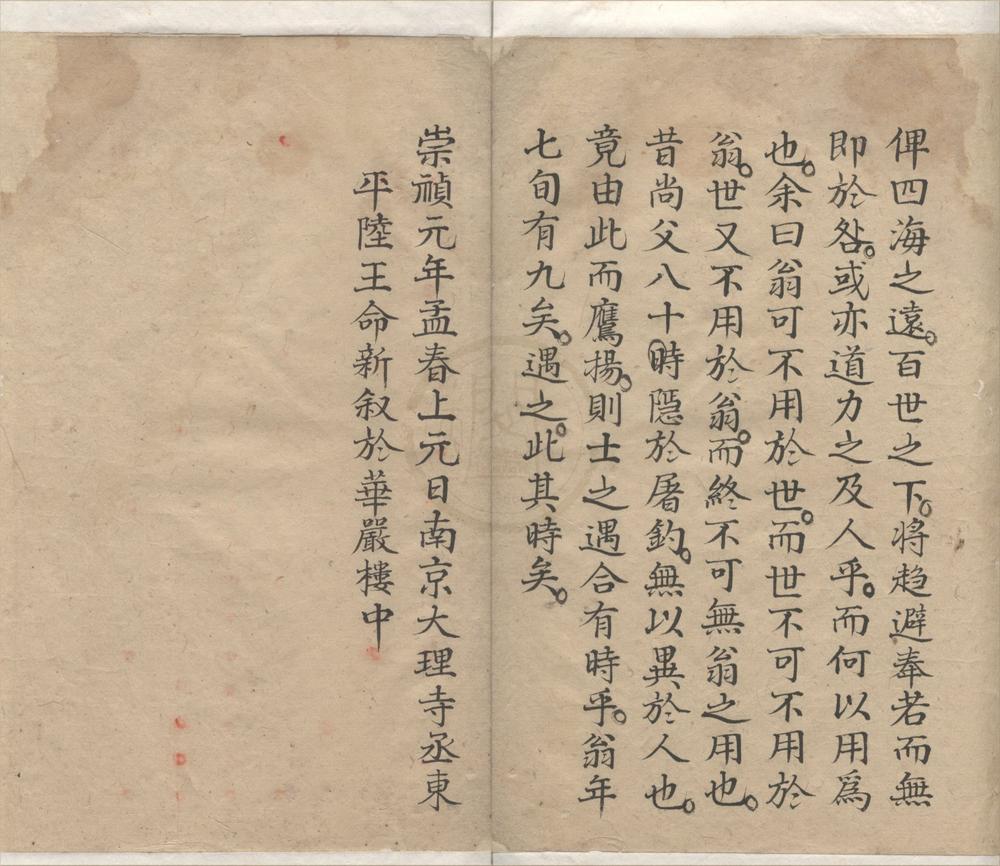 俾四海之遠。百世之下。将趋避奉若而無
即於咎。或亦道力之及人乎。而何以用爲
也。余曰翁可不用於世。而世不可不用於
翁。世又不用於翁。而終不可無翁之用也。
昔尚父八十時隱於屠釣。無以異於人也。
竟由此而鷹揚。則士之遇合有時乎。翁年
七旬有九矣。遇之。此其時矣。
崇禎元年孟春上元日南京大理寺丞東
平陸王命新叙於華嚴樓中